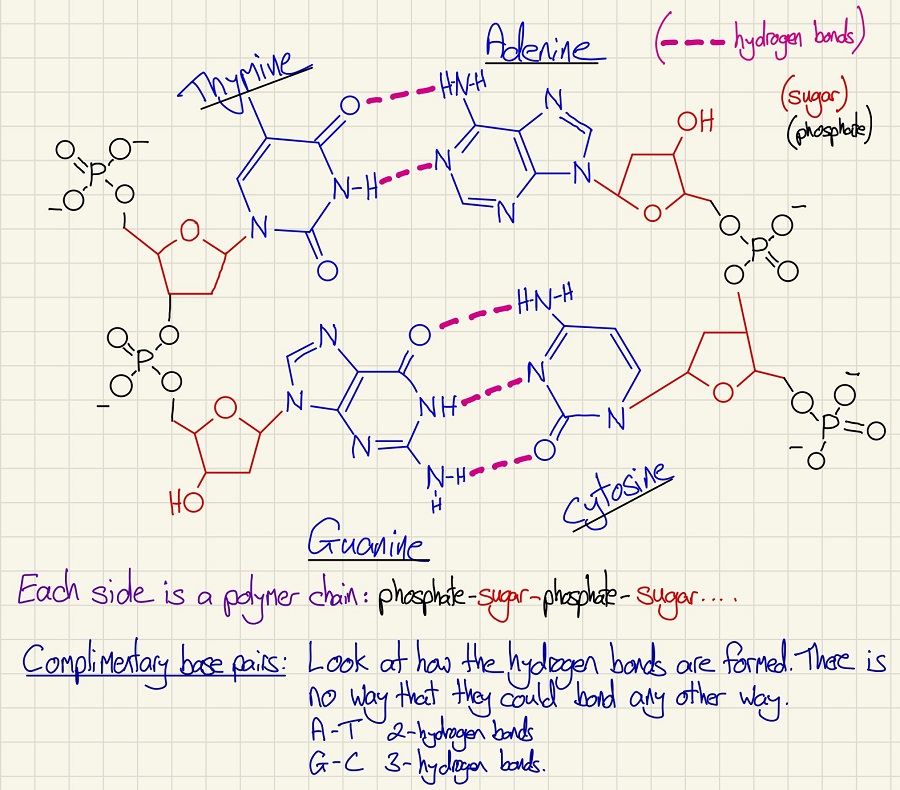 Adenine
(--- hydrogen bonds)
Thymine
(sugar)
(phosphate)
H-N-H
O
N
N
OH
O
O-
P
-O
O
N-H
N
N
O
N
N
O
O
O-
O
P
O
O
H-N-H
O
N
O
P
O
O-
N
NH
N
O
O-
O
N
O
P
O
-O
N
O
N
N-H
H
HO
Cytosine
Guanine
Each side is a polymer chain: phosphate-sugar-phosphate-sugar....
Complimentary base pairs: Look at how the hydrogen bonds are formed. There is
no way that they could bond any other way.
A-T 2-hydrogen bonds
G-C 3-hydrogen bonds.